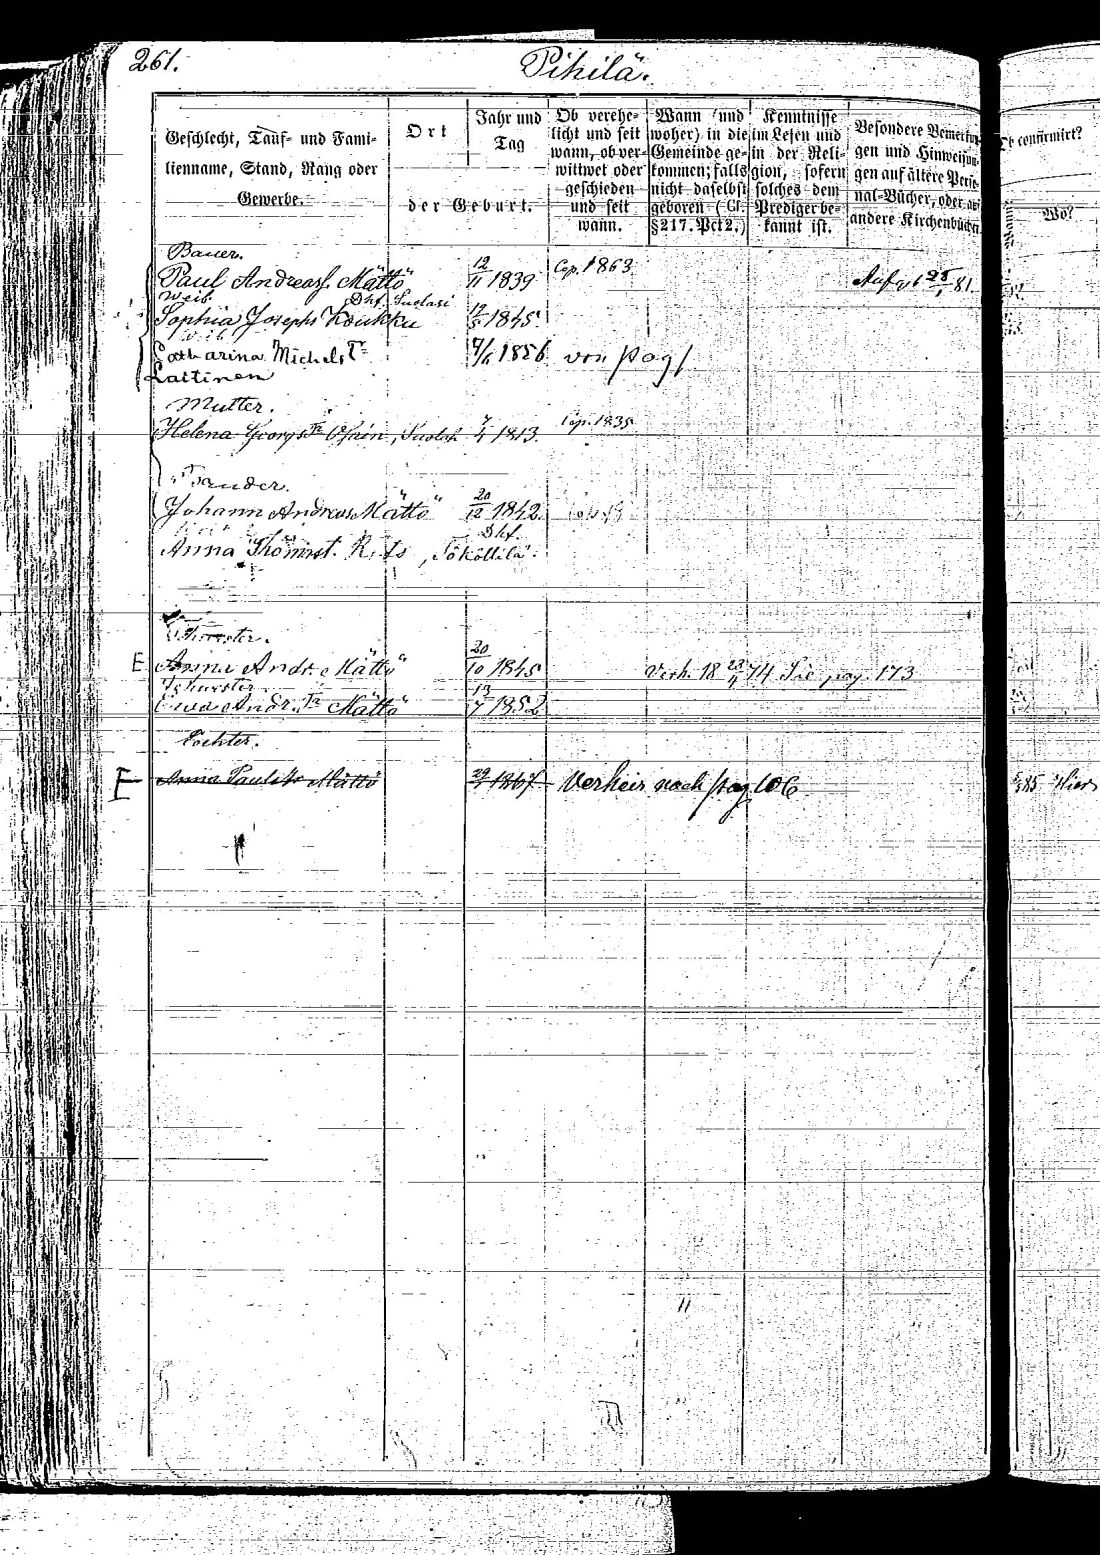 261.
Pihilä.
Geschlecht, Tauf- und Fami-
lienname, Stand, Rang oder
Gewerbe.
Ort
Jahr und
Tag
der Geburt.
Ob verehe-
licht und seit
wann, ob ver-
wittwet oder
geschieden
und seit
wann.
Wann (und
woher) in die
Gemeinde ge-
kommen; falls
nicht daselbst
geboren (Cf.
§217. Pct 2.)
Kenntnisse
im Lesen und
in der Reli-
gion, sofern
solches dem
Prediger be-
kannt ist.
Besondere Bemerkun-
gen und Hinweisun-
gen auf ältere Perso-
nal-Bücher, oder auf
andere Kirchenbücher
confirmirt?
Wann
Wo?
Bauer.
Paul Andreasf. Mättö 12/11 1839 Cop. 1863 28/1 81.
Weib Dhf. Suolasi
Sophia Josephs Koukku 12/5 1845.
Weib
Catharina Michels Tr 1856 von pag
Laitinen
Mutter.
Helena Georgs Tr 1813. Cop. 1835
Bruder.
Johann Andreas Mättö 20/12 1842.
Dhf.
Anna Thomast.
Schwester.
E Anna Andr. Mättö 20/10 1845 Verh. 18 74 Sie pag. 173
Schwester
Ewa Andr. Tr Mättö 13/7 1852
Tochter.
E Anna Pauls Tr Mättö 29/ 1867 Verheir nach pag 106
85 Hier